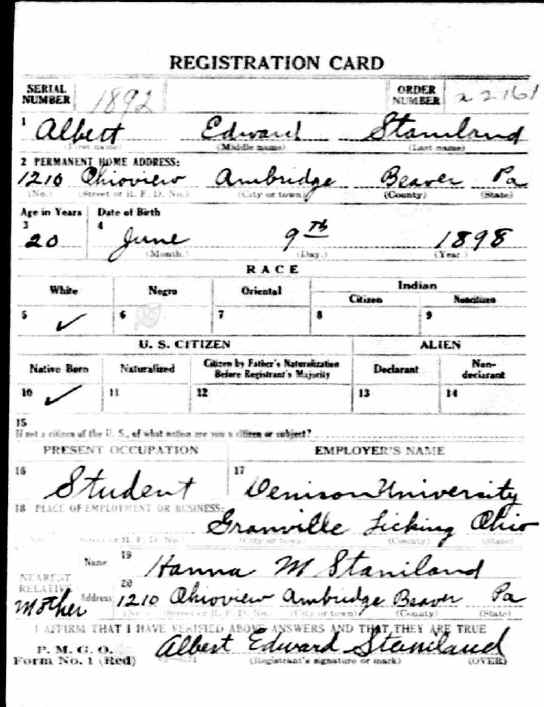 REGISTRATION CARD
SERIAL NUMBER 1892 ORDER NUMBER a 2161
1 Albert Edward Staniland
(First name) (Middle name) (Last name)
2 PERMANENT HOME ADDRESS:
1210 Ohioview Ambridge Beaver Pa
(No.) (Street or R. F. D. No.) (City or town) (County) (State)
Age in Years Date of Birth
3 4
20 June 9th 1898
(Month.) (Day.) (Year.)
RACE
White Negro Oriental Indian
Citizen Noncitizen
5 ✓ 6 7 8 9
U. S. CITIZEN ALIEN
Native Born Naturalized Citizen by Father's Naturalization Before Registrant's Majority Declarant Non-declarant
10 ✓ 11 12 13 14
15
If not a citizen of the U. S., of what nation are you a citizen or subject?
PRESENT OCCUPATION EMPLOYER'S NAME
16 Student 17 Denison University
18 PLACE OF EMPLOYMENT OR BUSINESS:
Granville Licking Ohio
(No.) (Street or R. F. D. No.) (City or town) (County) (State)
NEAREST RELATIVE Name 19 Hanna M Staniland
Mother Address 20 1210 Ohioview Ambridge Beaver Pa
(No.) (Street or R. F. D. No.) (City or town) (County) (State)
I AFFIRM THAT I HAVE VERIFIED ABOVE ANSWERS AND THAT THEY ARE TRUE
P. M. G. O.
Form No. 1 (Red) Albert Edward Staniland
(Registrant's signature or mark) (OVER)